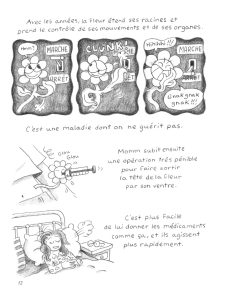 Avec les années, la fleur étend ses racines et
prend le contrôle de ses mouvements et de ses organes.
Hmm!
MARCHE
ARRÊT
CLUNK!
HMMM!!!
MARCHE
Gnak gnak
gnak !!!
C'est une maladie dont on ne guérit pas.
Glou
Glou
Momm subit ensuite
une opération très pénible
pour faire sortir
la tête de la fleur
par son ventre.
C'est plus facile
de lui donner les médicaments
comme ça, et ils agissent
plus rapidement.
12